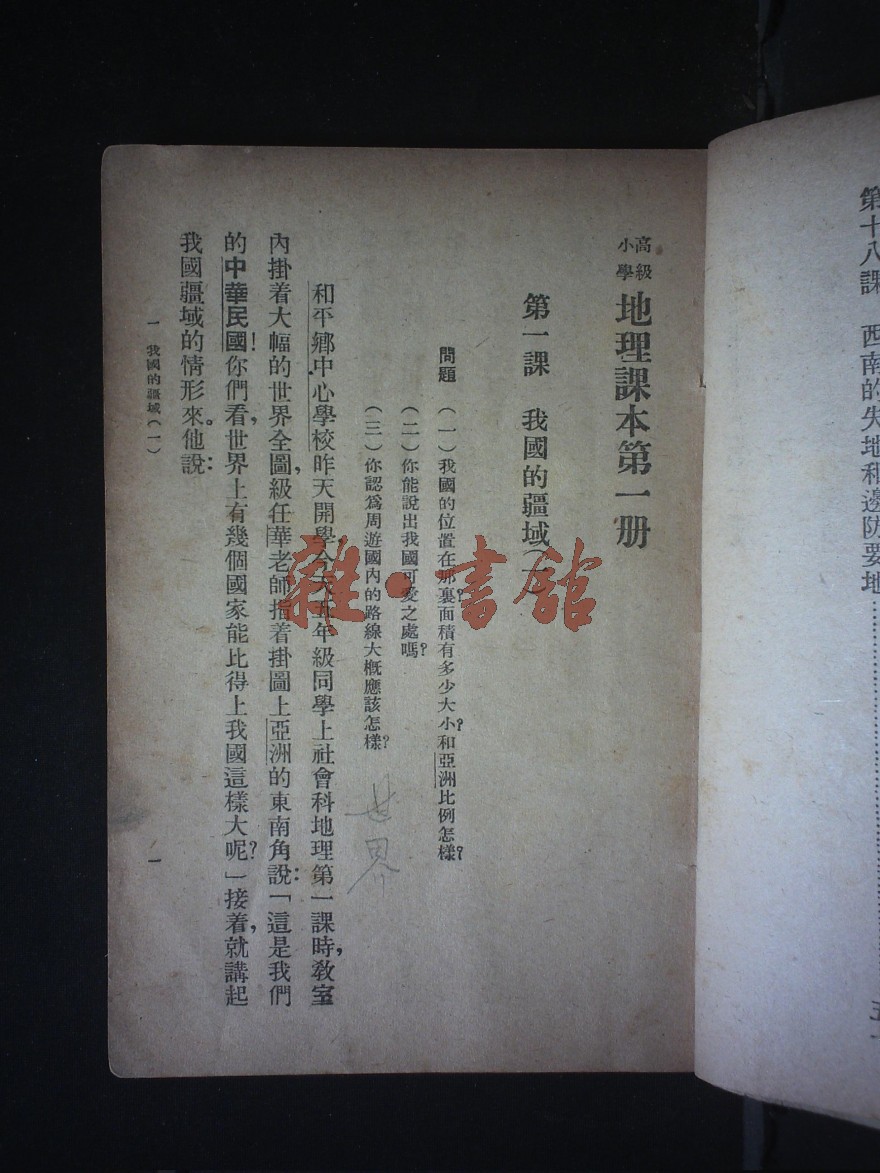 第十八課　西南的失地和邊防要地……………五一
高級小學 地理課本第一册
第一課　我國的疆域(一)
問題　(一)我國的位置在那裏?面積有多少大小?和亞洲比例怎樣?
(二)你能說出我國可愛之處嗎?
(三)你認爲周遊國內的路線大概應該怎樣?
世界
和平鄉中心學校昨天開學,今天五年級同學上社會科地理第一課時,教室
內掛着大幅的世界全圖,級任華老師指着掛圖上亞洲的東南角說:「這是我們
的中華民國!你們看,世界上有幾個國家能比得上我國這樣大呢?」接着,就講起
我國疆域的情形來。他說:
一　我國的疆域(一)
一
雜·書館